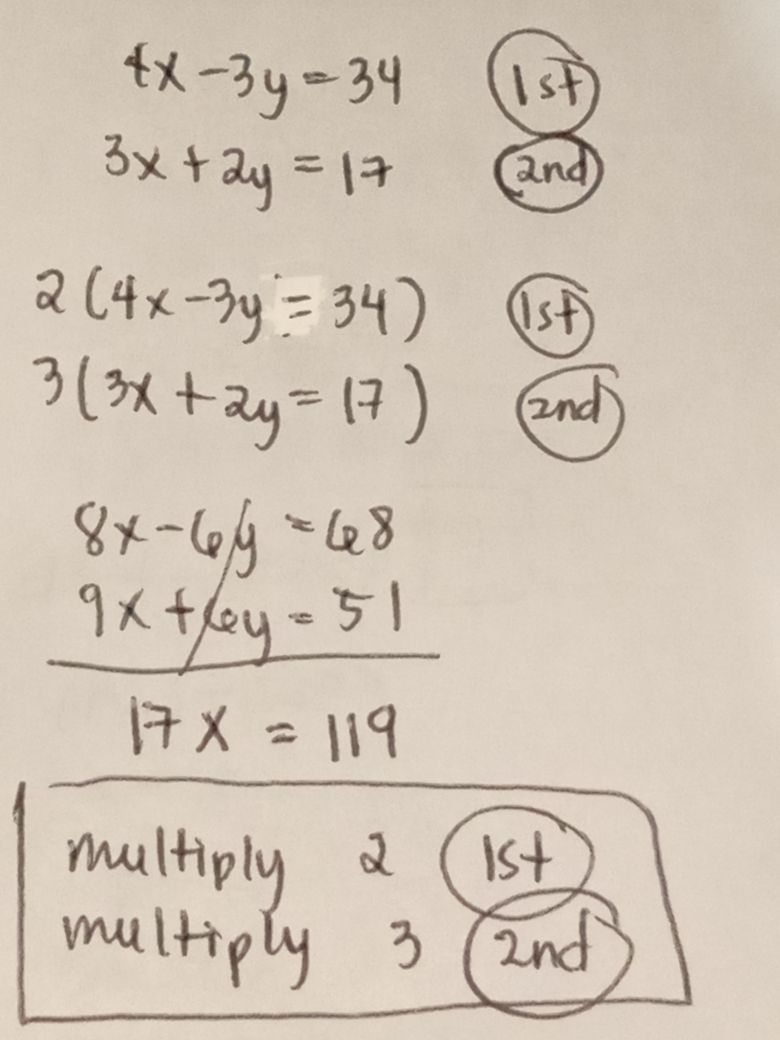 4x - 3y = 34 1st
3x + 2y = 17 2nd
2(4x - 3y = 34) 1st
3(3x + 2y = 17) 2nd
8x - 6y = 68
9x + 6y = 51
17x = 119
multiply 2 1st
multiply 3 2nd